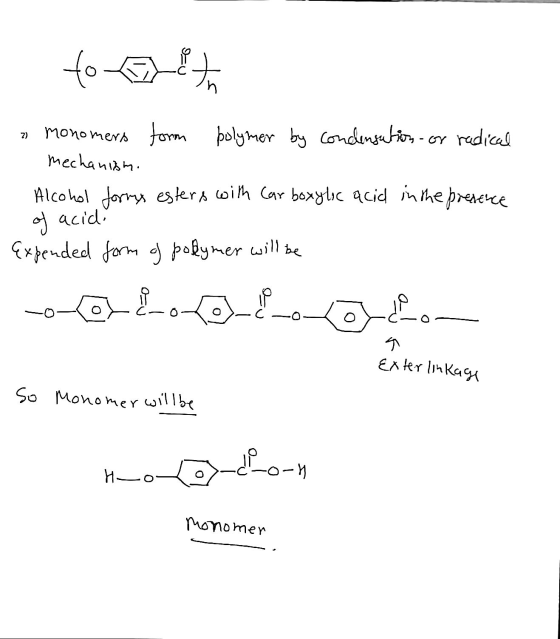 O C O n
⇒ monomers form polymer by condensation - or radical
mechanism.
Alcohol forms esters with Carboxylic acid in the presence
of acid.
Expended form of polymer will be
O O O
—O— C—O— C—O— C—O—
↑
Exter linkage
So Monomer will be
O
H—O— C—O—H
Monomer.